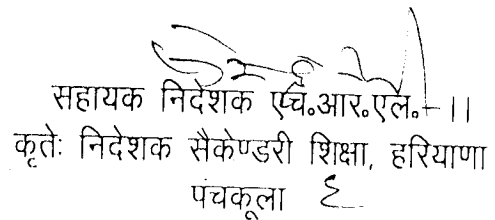 सहायक निदेशक एच.आर.एल.-।।
कृतेः निदेशक सैकेण्डरी शिक्षा, हरियाणा
पंचकूला